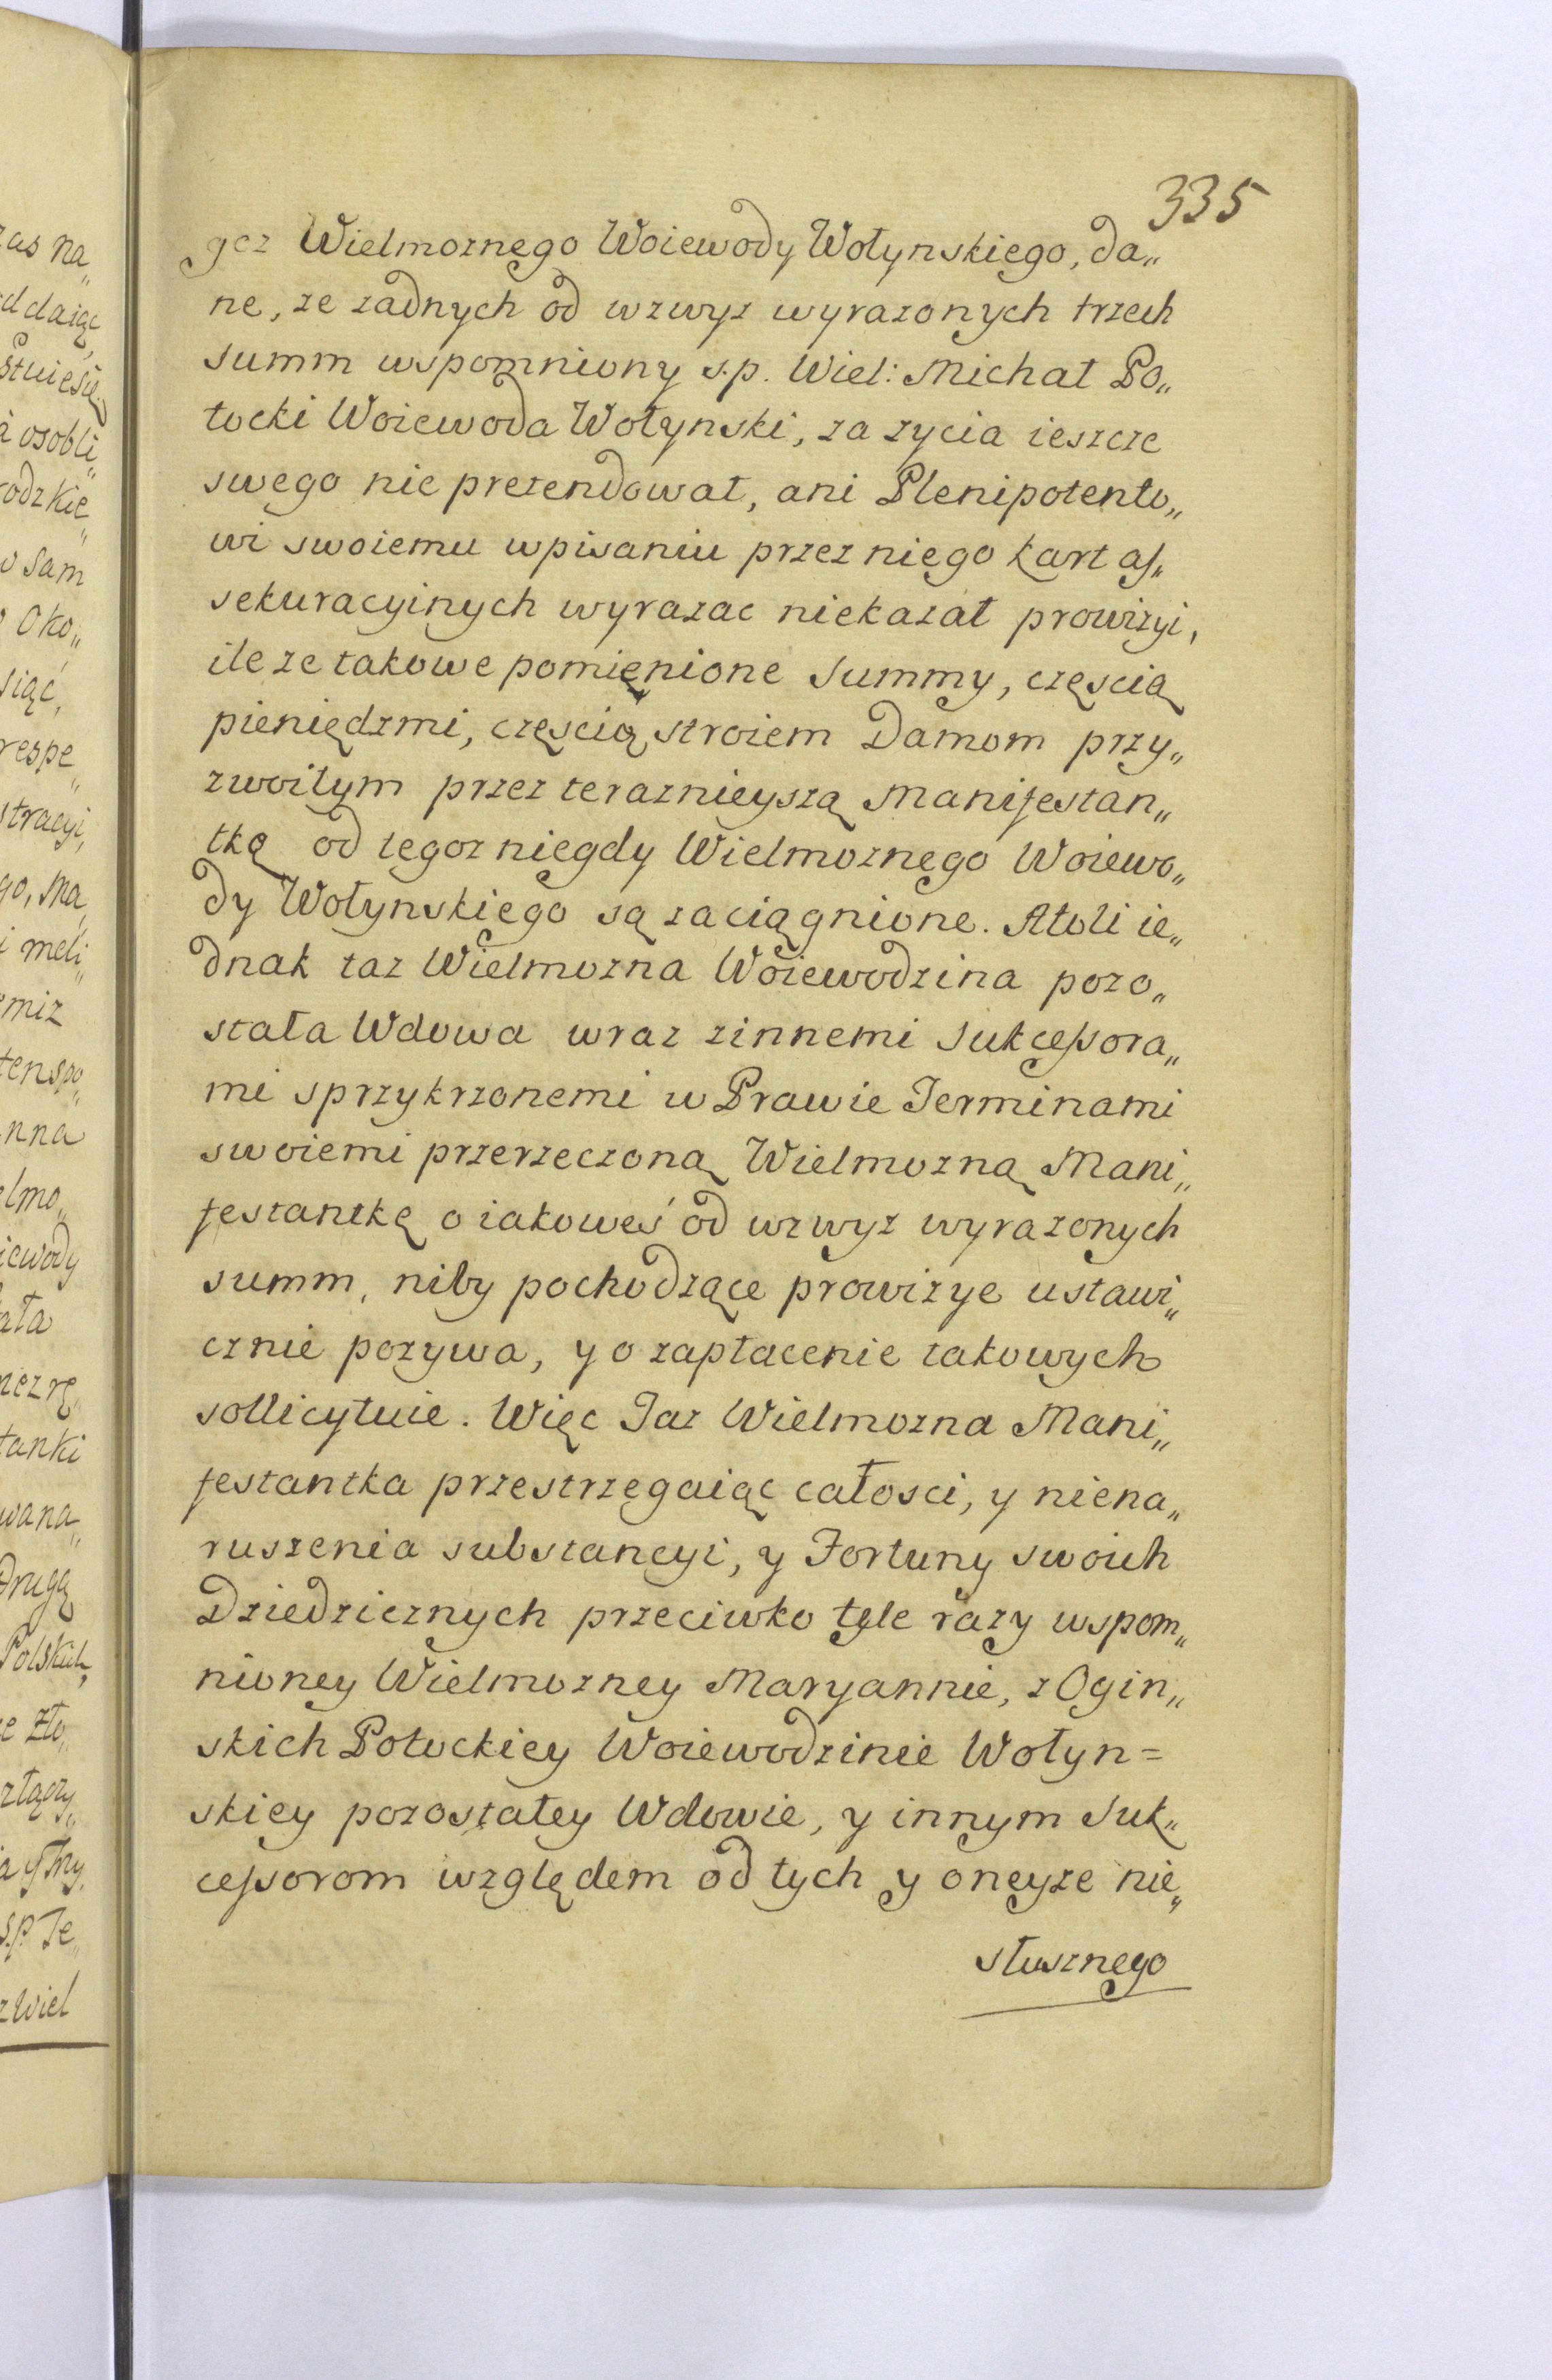 335
goz Wielmoznego Woiewody Wołynskiego, da„
ne, ze zadnych od wzwyz wyrazonych trzech
summ wspomniony s.p. Wiel: Michał Po„
tocki Woiewoda Wołynski, za zycia ieszcze
swego nie pretendował, ani Plenipotento„
wi swoiemu wpisaniu przez niego kart as„
sekuracyinych wyrazac niekazał prowizyi,
ile ze takowe pomięnione summy, częscią
pieniędzmi, częscią stroiem Damom przy„
zwoitym przez teraznieyszą Manifestan„
tkę od tegoz niegdy Wielmoznego Woiewo„
dy Wołynskiego są zaciągnione. Atoli ie„
dnak taz Wielmozna Woiewodzina pozo„
stała Wdowa wraz zinnemi Sukcessora„
mi sprzykrzonemi w Prawie Terminami
swoiemi przerzeczoną Wielmozną Mani„
festantkę o iakoweś od wzwyz wyrazonych
summ, niby pochodzące prowizye ustawi„
cznie pozywa, y o zapłacenie takowych
sollicytuie. Więc Taz Wielmozna Mani„
festantka przestrzęgaiąc całosci, y niena„
ruszenia substancyi, y Fortuny swoich
Dziedzicznych przeciwko tyle razy wspom„
nioney Wielmozney Maryannie, z Ogin„
skich Potockiey Woiewodzinie Wołyn=
skiey pozostałey Wdowie, y innym Suk„
cessorom względem od tych y oneyze nie„
słusznego
zas na„
ddaiąc
osobli„
rodzkie„
o sam
Oko„
siąć,
respe„
stracyi,
go, Ma„
i meli„
miz
nna
elmo„
iewody
ała
tanki
wana„
Drugą
Polskich,
e Zło„
s.p. Te„
z Wiel